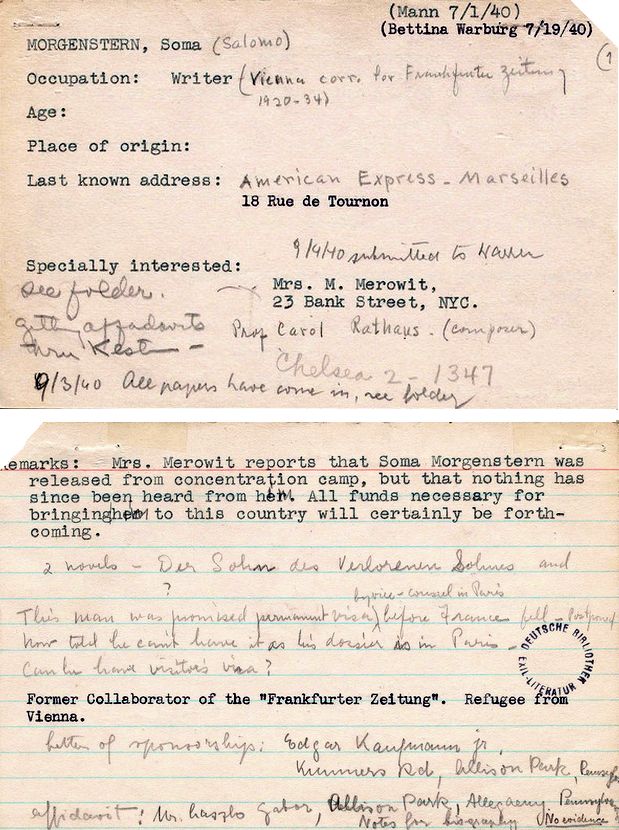 (Mann 7/1/40)
(Bettina Warburg 7/19/40)
(1
MORGENSTERN, Soma (Salomo)
Occupation: Writer (Vienna corr. for Frankfurter Zeitung
1920-34)
Age:
Place of origin:
Last known address: American Express - Marseilles
18 Rue de Tournon
9/9/40 submitted to Warren
Specially interested:
see folder.
Mrs. M. Merowit,
23 Bank Street, NYC.
getting affadavits
thru Kesten -
Prof Carol Rathaus. (composer)
Chelsea 2-1347
9/3/40 All papers have come in, see folder
emarks: Mrs. Merowit reports that Soma Morgenstern was
released from concentration camp, but that nothing has
since been heard from him. All funds necessary for
bringing him to this country will certainly be forth-
coming.
2 novels - Der Sohn des Verlorenen Sohnes and
?
by vice-consul in Paris
This man was promised permanent visa before France fell - Postponed
now told he can't have it as his dossier is in Paris -
Can he have visitor's visa?
DEUTSCHE BIBLIOTHEK
EXIL-LITERATUR
Former Collaborator of the "Frankfurter Zeitung". Refugee from
Vienna.
Letter of sponsorship: Edgar Kaufmann jr,
Kummers Rd, Allison Park,
affidavit: Mr. Laszlo Gabor, Allison Park, Allegheny Pennsylv
Notes for biography No evidence